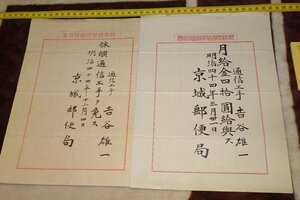 通信工手 吉谷雄一
月給金四拾圓給與ス
明治四十四年三月卅一日
京城郵便局
通信工手 吉谷雄一
依願通信工手ヲ免ス
明治四十四年十一月四日
京城郵便局